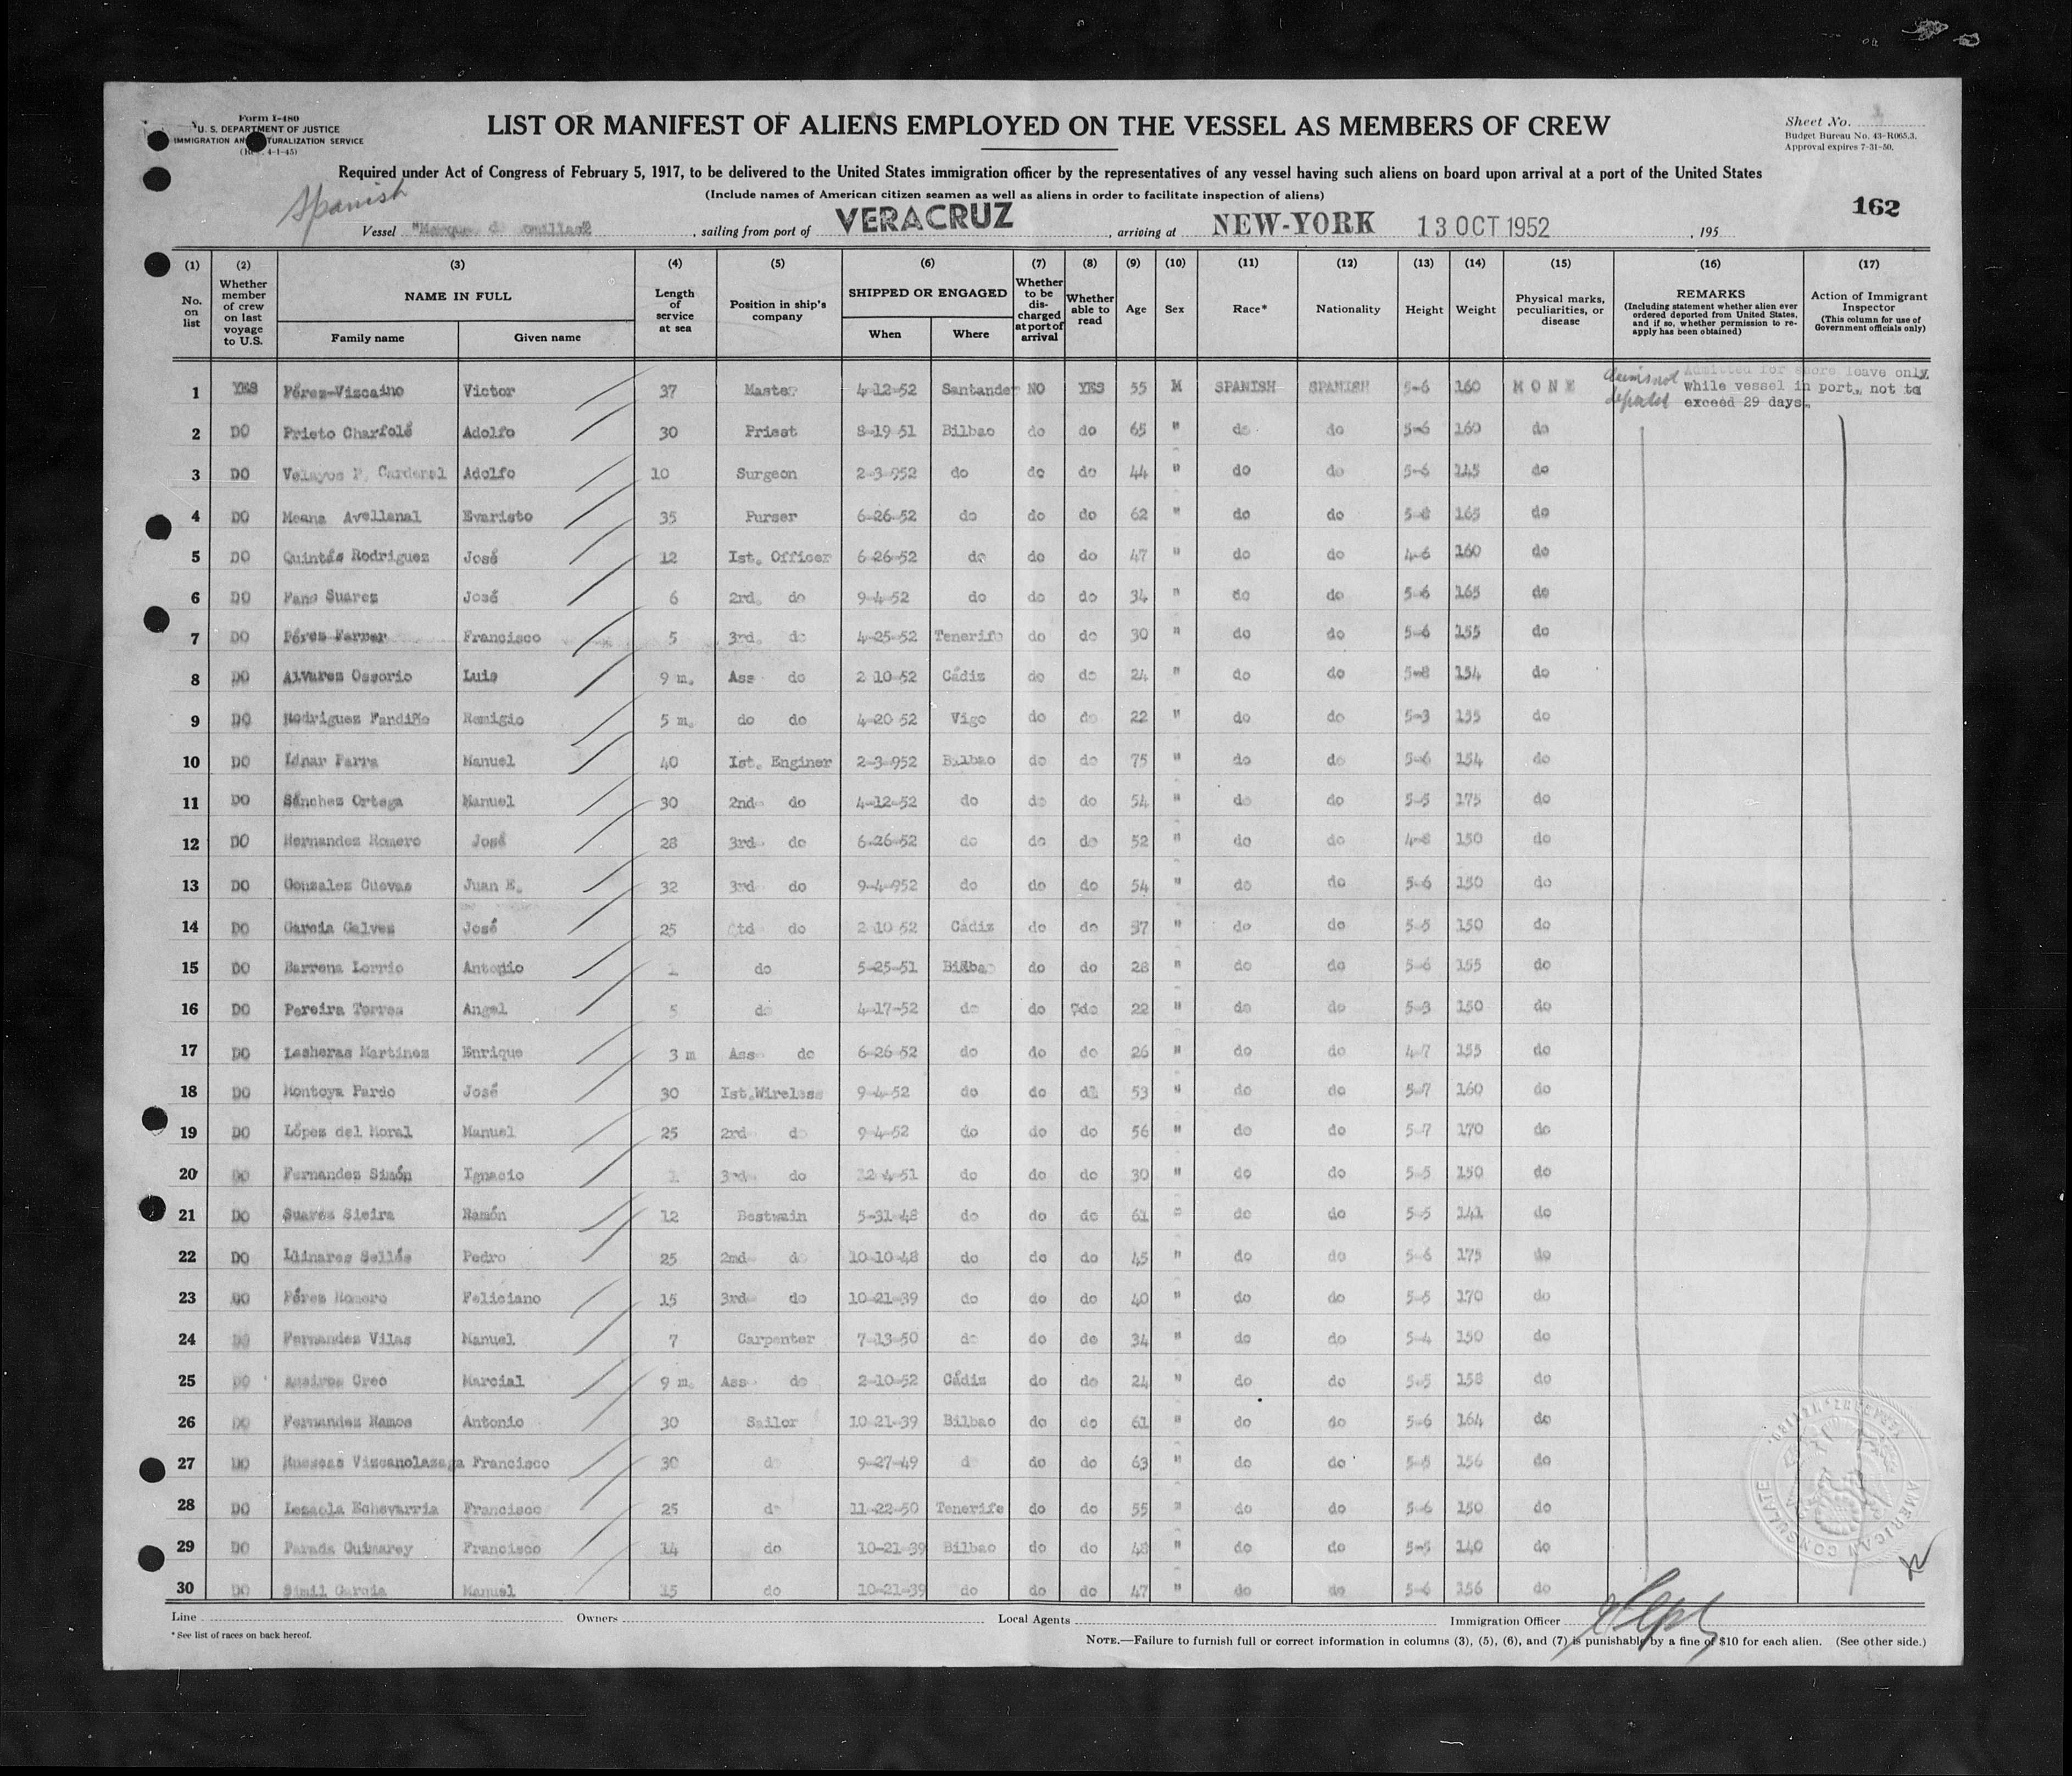 Form I-480
U. S. DEPARTMENT OF JUSTICE
IMMIGRATION AND NATURALIZATION SERVICE
4-1-45)
LIST OR MANIFEST OF ALIENS EMPLOYED ON THE VESSEL AS MEMBERS OF CREW
Sheet No.
Budget Bureau No. 43-R065.3.
Approval expires 7-31-50.
Required under Act of Congress of February 5, 1917, to be delivered to the United States immigration officer by the representatives of any vessel having such aliens on board upon arrival at a port of the United States
(Include names of American citizen seamen as well as aliens in order to facilitate inspection of aliens)
Spanish
162
Vessel , sailing from port of VERACRUZ , arriving at NEW-YORK 13 OCT 1952 , 195
(1) (2) (3) (4) (5) (6) (7) (8) (9) (10) (11) (12) (13) (14) (15) (16) (17)
No. on list Whether member of crew on last voyage to U.S. NAME IN FULL Family name Given name Length of service at sea Position in ship's company SHIPPED OR ENGAGED When Where Whether to be discharged at port of arrival Whether able to read Age Sex Race* Nationality Height Weight Physical marks, peculiarities, or disease REMARKS (Including statement whether alien ever ordered deported from United States, and if so, whether permission to reapply has been obtained) Action of Immigrant Inspector (This column for use of Government officials only)
Admitted for shore leave only
while vessel in port, not to
exceed 29 days.
1 YES Pérez-Vizcaino Victor 37 Master 4-12-52 Santander NO YES 55 M SPANISH SPANISH 5-6 160 N O N E
2 DO Prieto Charfolé Adolfo 30 Priest 8-19 51 Bilbao do do 65 " do do 5-6 160 do
3 DO Velayos P. Cardenal Adolfo 10 Surgeon 2-3-952 do do do 44 " do do 5-6 145 do
4 DO Meana Avellanal Evaristo 35 Purser 6-26-52 do do do 62 " do do 5-8 165 do
5 DO Quintás Rodriguez José 12 Ist. Officer 6-26-52 do do do 47 " do do 4-6 160 do
6 DO Fano Suarez José 6 2rd. do 9-4-52 do do do 34 " do do 5-6 165 do
7 DO Pérez Ferrer Francisco 5 3rd. do 4-25-52 Tenerife do do 30 " do do 5-6 155 do
8 DO Alvarez Ossorio Luis 9 m. Ass do 2 10-52 Cádiz do do 24 " do do 5-8 154 do
9 DO Rodriguez Fandiño Remigio 5 m. do do 4-20 52 Vigo do do 22 " do do 5-3 155 do
10 DO Manuel 40 Ist. Enginer 2-3-952 Bilbao do do 75 " do do 5-6 154 do
11 DO Sánchez Ortega Manuel 30 2nd do 4-12-52 do do do 54 " do do 5-5 175 do
12 DO Hernandez Romero José 28 3rd do 6-26-52 do do do 52 " do do 4-8 150 do
13 DO Gonzalez Cuevas Juan E. 32 3rd do 9-4-952 do do do 54 " do do 5-6 150 do
14 DO Garcia Galvez José 25 do 2-10 52 Cádiz do do 37 " do do 5-5 150 do
15 DO Barrena Lorrio Antonio 1 do 5-25-51 Bilbao do do 28 " do do 5-6 155 do
16 DO Pereira Torres Angel 5 do 4-17-52 do do do 22 " do do 5-3 150 do
17 DO Lasheras Martinez Enrique 3 m Ass do 6-26 52 do do do 26 " do do 4-7 155 do
18 DO Montoya Pardo José 30 Ist.Wireless 9-4-52 do do 53 " do do 5-7 160 do
19 DO López del Moral Manuel 25 2rd do 9-4-52 do do do 56 " do do 5-7 170 do
20 DO Fernandez Simón Ignacio 1 3rd do 12-4-51 do do do 30 " do do 5-5 150 do
21 DO Suarez Sieira Ramón 12 Bostwain 5-31-48 do do do 61 " do do 5-5 141 do
22 DO Llinares Sellés Pedro 25 2nd do 10-10-48 do do do 45 " do do 5-6 175 do
23 DO Pérez Romero Feliciano 15 3rd do 10-21-39 do do do 40 " do do 5-5 170 do
24 DO Fernandez Vilas Manuel 7 Carpenter 7-13-50 do do do 34 " do do 5-4 150 do
25 DO Creo Marcial 9 m. Ass do 2-10-52 Cádiz do do 24 " do do 5-5 158 do
26 DO Fernandez Ramos Antonio 30 Sailor 10-21-39 Bilbao do do 61 " do do 5-6 164 do
27 DO Francisco 30 do 9-27-49 do do 63 " do do 5-5 156 do
28 DO Echevarria Francisco 25 do 11-22-50 Tenerife do do 55 " do do 5-6 150 do
29 DO Parada Guimarey Francisco 14 do 10-21-39 Bilbao do do 48 " do do 5-5 140 do
30 DO Simil Garcia Manuel 15 do 10-21-39 do do do 47 " do do 5-6 156 do
AMERICAN CONSULATE
Line Owners Local Agents Immigration Officer
*See list of races on back hereof.
NOTE.—Failure to furnish full or correct information in columns (3), (5), (6), and (7) is punishable by a fine of $10 for each alien. (See other side.)